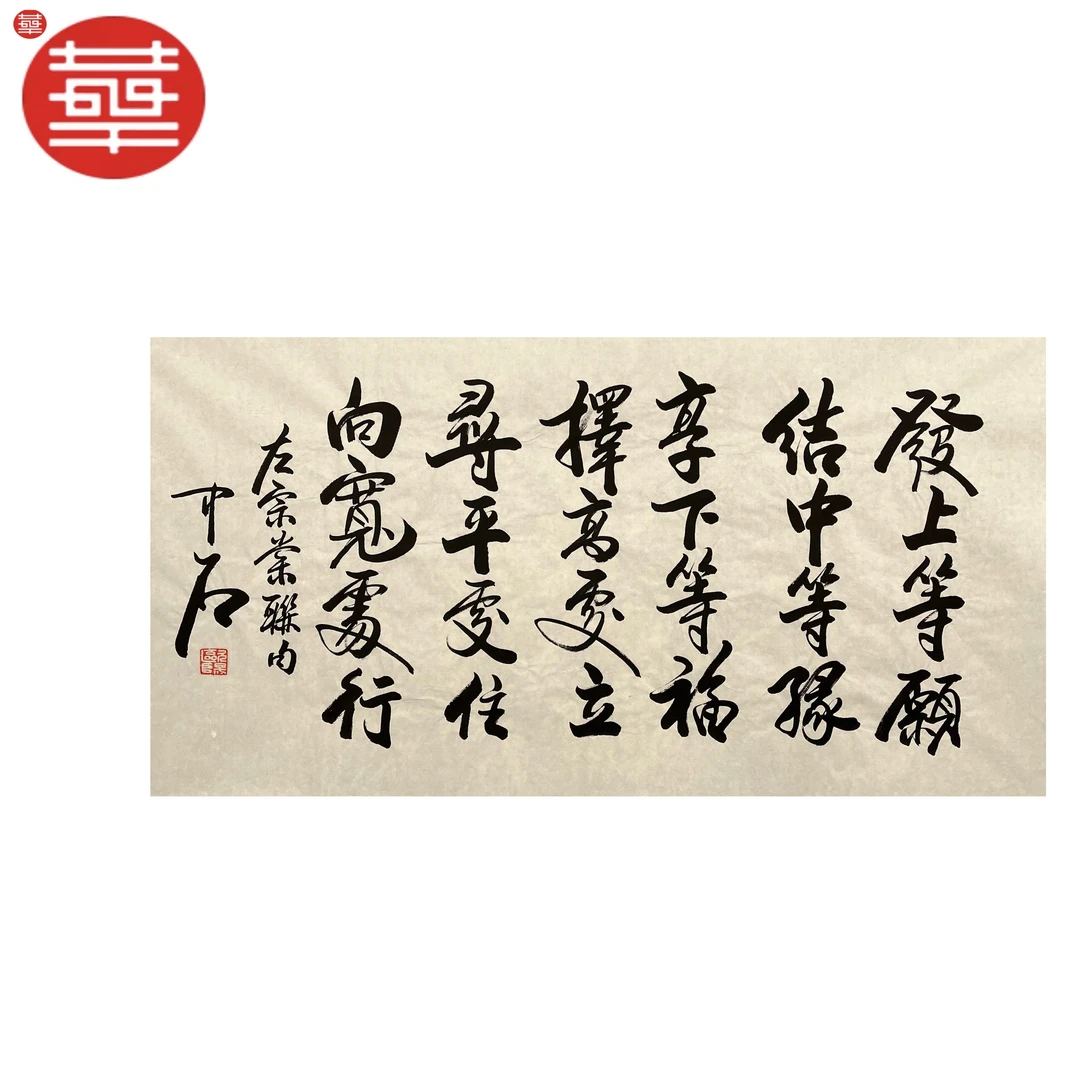 華
華
發上等願
結中等緣
享下等福
擇高處立
尋平處住
向寬處行
左宗棠聯句
中石